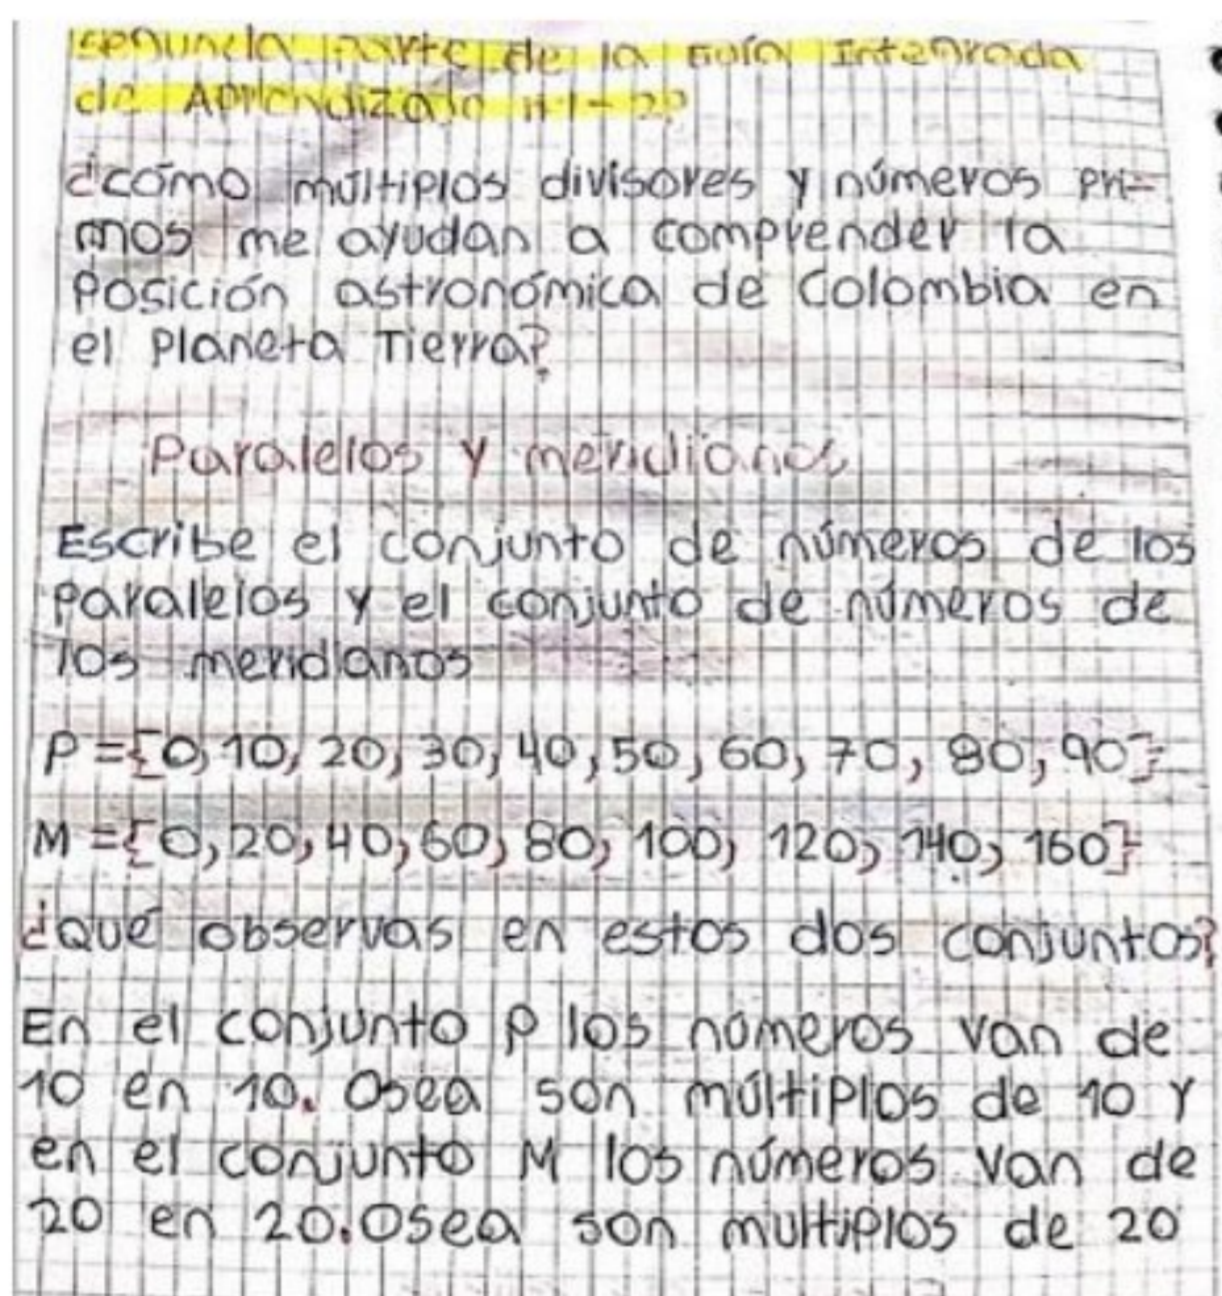 segunda parte de la Guía Integrada
de Aprendizaje
¿cómo múltiplos divisores y números pri-
mos me ayudan a comprender la
Posición astronómica de Colombia en
el Planeta Tierra?
Paralelos y meridianos
Escribe el conjunto de números de los
paralelos y el conjunto de números de
los meridianos
P={0, 10, 20, 30, 40, 50, 60, 70, 80, 90}
M={0, 20, 40, 60, 80, 100, 120, 140, 160}
¿Qué observas en estos dos conjuntos?
En el conjunto P los números van de
10 en 10. Osea son múltiplos de 10 y
en el conjunto M los números van de
20 en 20. Osea son multiplos de 20